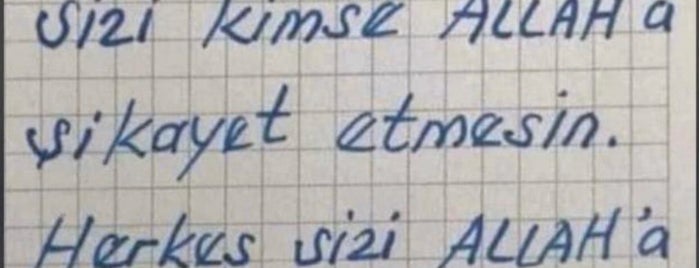 sizi kimse ALLAH'a
şikayet etmesin.
Herkes sizi ALLAH'a